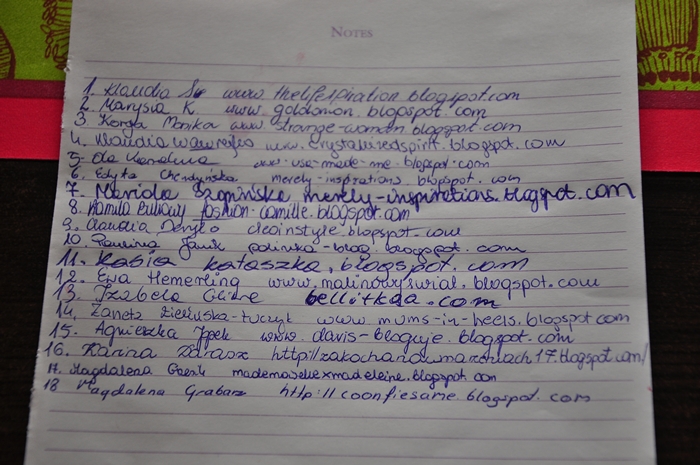 NOTES
1. Klaudia www.thelifespiration.blogspot.com
2. Marysia K. www.goldomon.blogspot.com
3. Korga Monika www.strange-woman.blogspot.com
4. Klaudia www.crystalizedspirit.blogspot.com
5. Ola www.usa-made-me.blogspot.com
6. Edyta Chendyńska merely-inspirations.blogspot.com
7. Mariola merely-inspirations.blogspot.com
8. Kamila fashion-camille.blogspot.com
9. Claudia cleoinstyle.blogspot.com
10. Paulina Janik palinka-blog.blogspot.com
11. Kasia kataszka.blogspot.com
12. Ewa Hemerling www.malinowysurial.blogspot.com
13. Izabela bellitkaa.com
14. Żaneta Zielińska-Tuczyk www.mums-in-heels.blogspot.com
15. Agnieszka www.davis-bloguje.blogspot.com
16. Karina Zdrasz http://zakochanawmarzeniach17.blogspot.com/
17. Magdalena mademoisellexmadeleine.blogspot.com
18 Magdalena Grabarz http://coonfiesame.blogspot.com